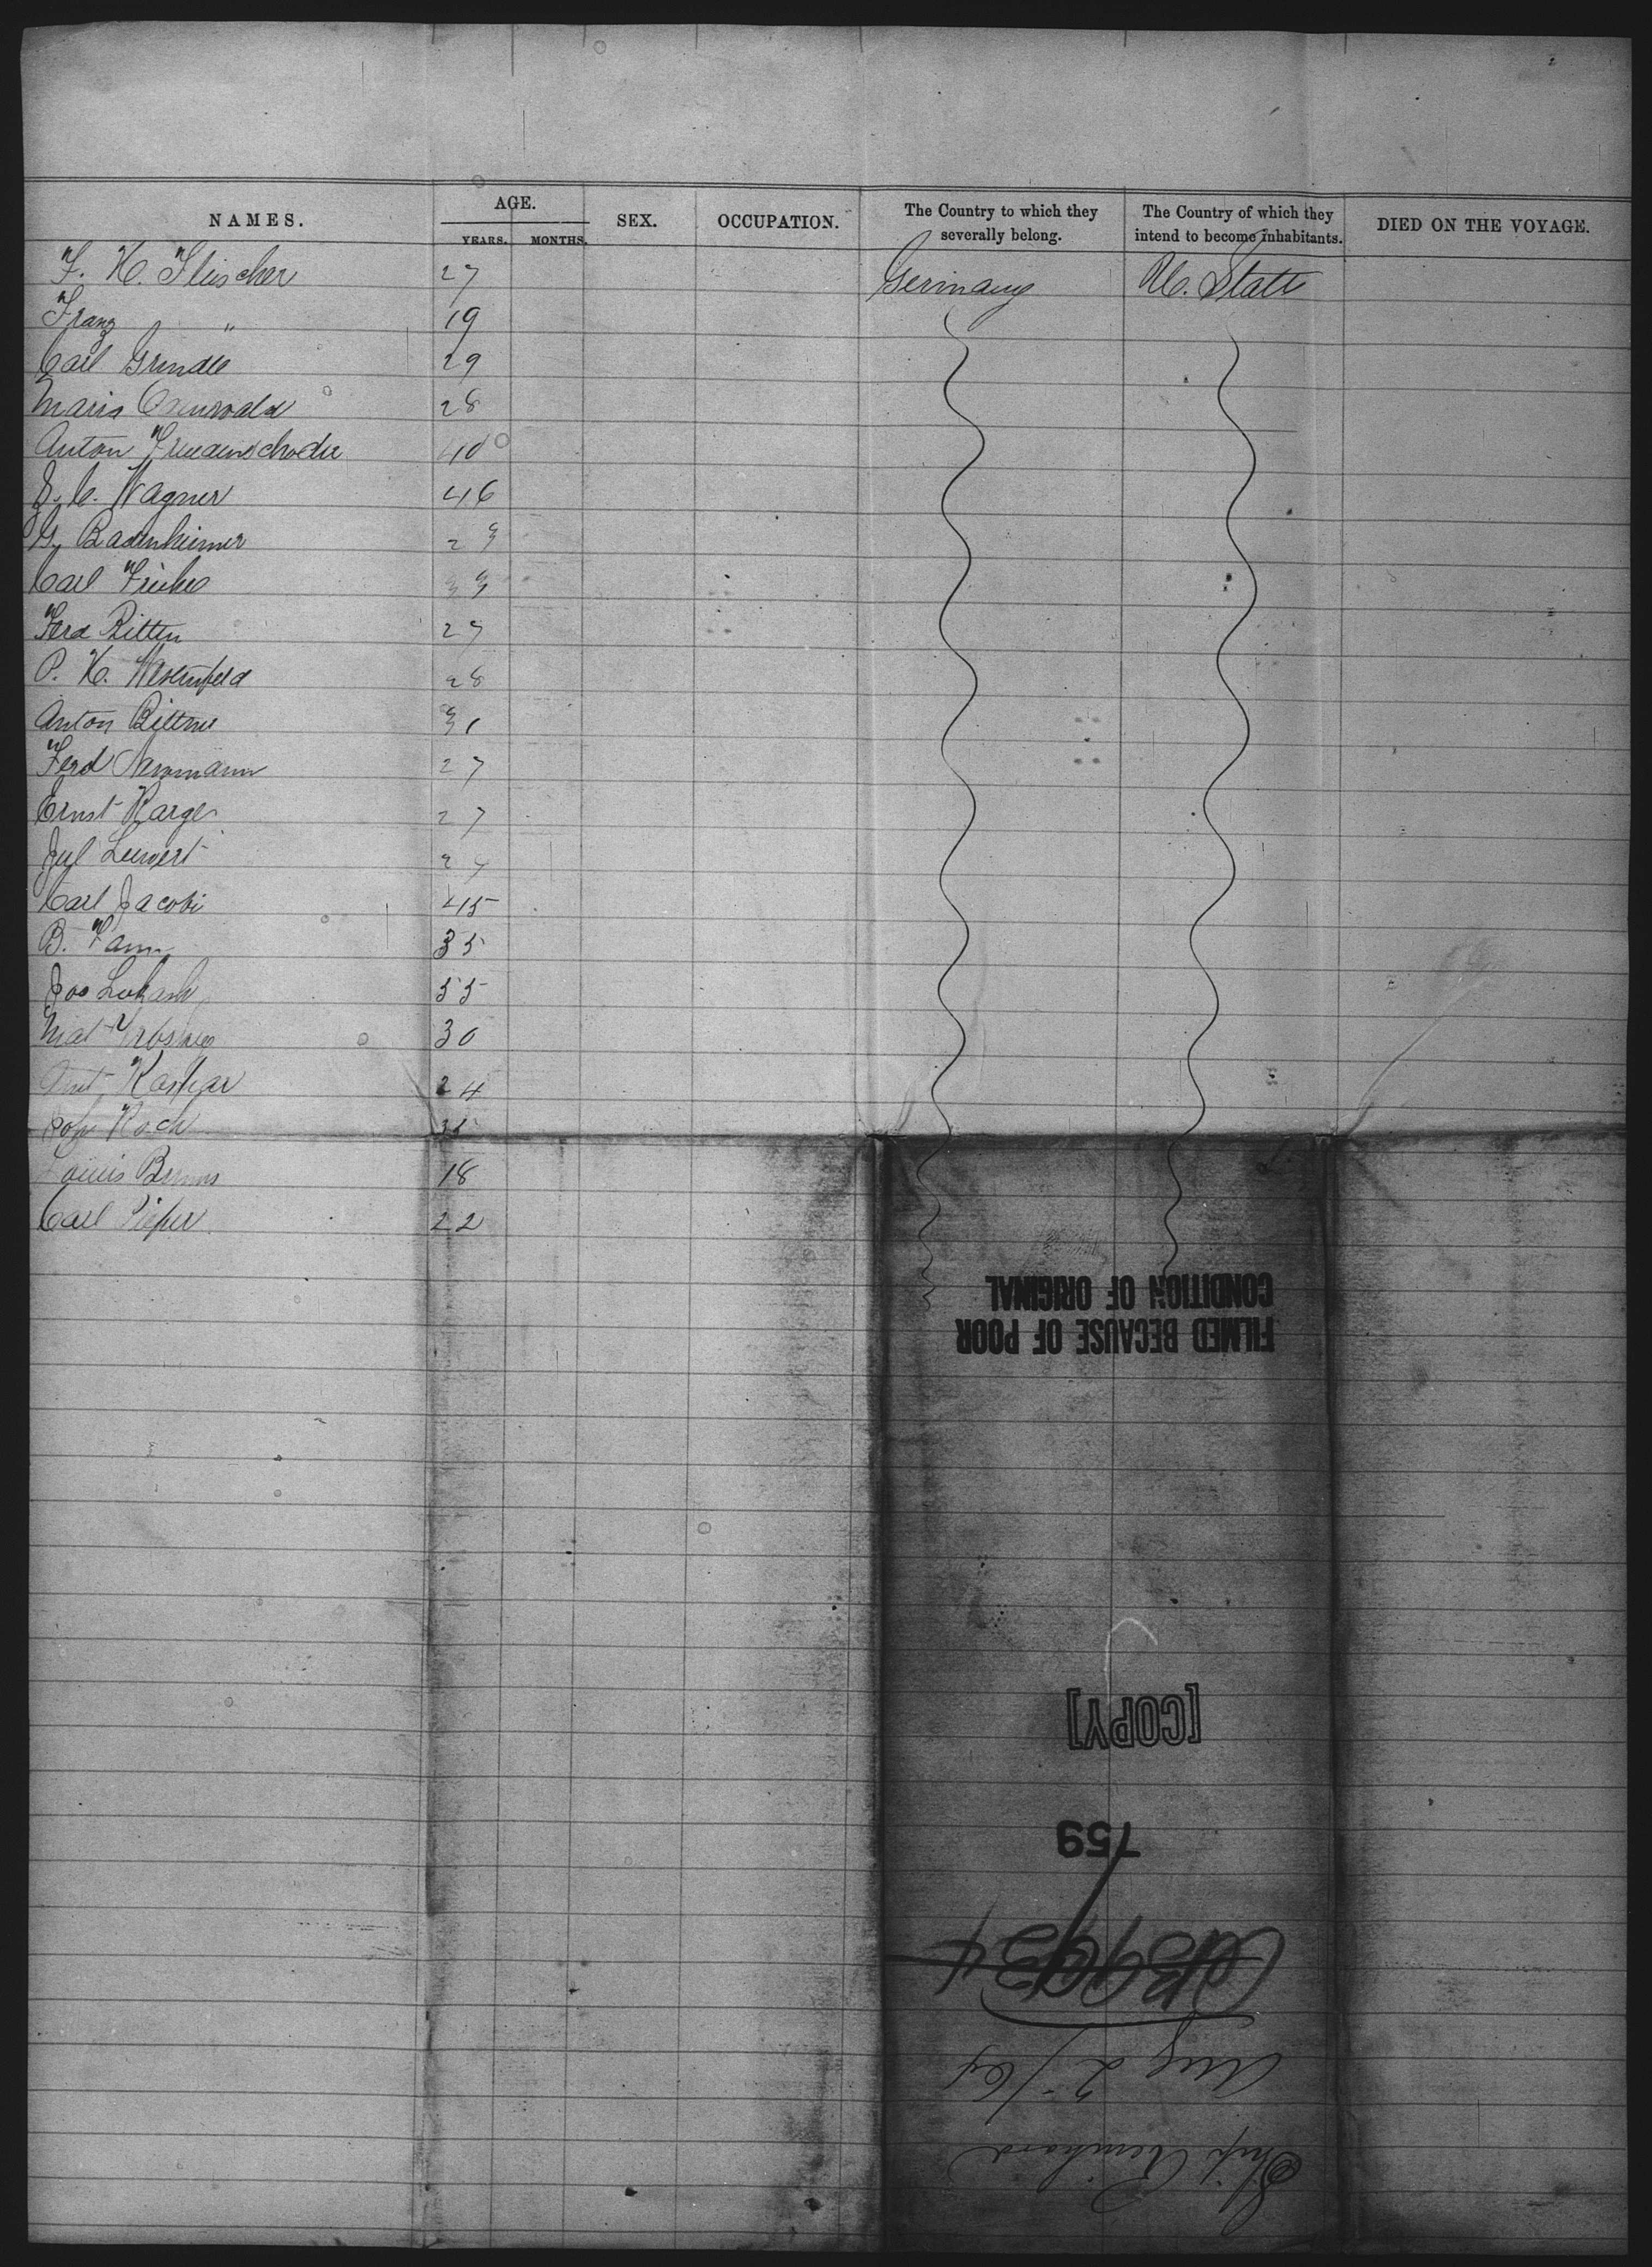 NAMES. AGE. SEX. OCCUPATION. The Country to which they severally belong. The Country of which they intend to become inhabitants. DIED ON THE VOYAGE.
YEARS. MONTHS.
F. H. Fleischer 27 Germany U. State
Franz " 19
Carl Grundee 29
Maria 28
Anton 40
J. C. Wagner 46
G. Badenheimer 29
Carl Fricke 33
Ferd Bitten 27
P. H. Wesenfeld 28
Anton Bittner 31
Ferd Newmann 27
Ernst Rarge 27
Jul Luewert 24
Carl Jacobi 45
B. Fann 35
Jos Lukash 55
Mat 30
Ant Kaspar 24
Joh Koch 35
Louis Bruns 18
Carl Piefer 22
FILMED BECAUSE OF POOR
CONDITION OF ORIGINAL
[COPY]
759
Aug 2/64
Ship Reinhard